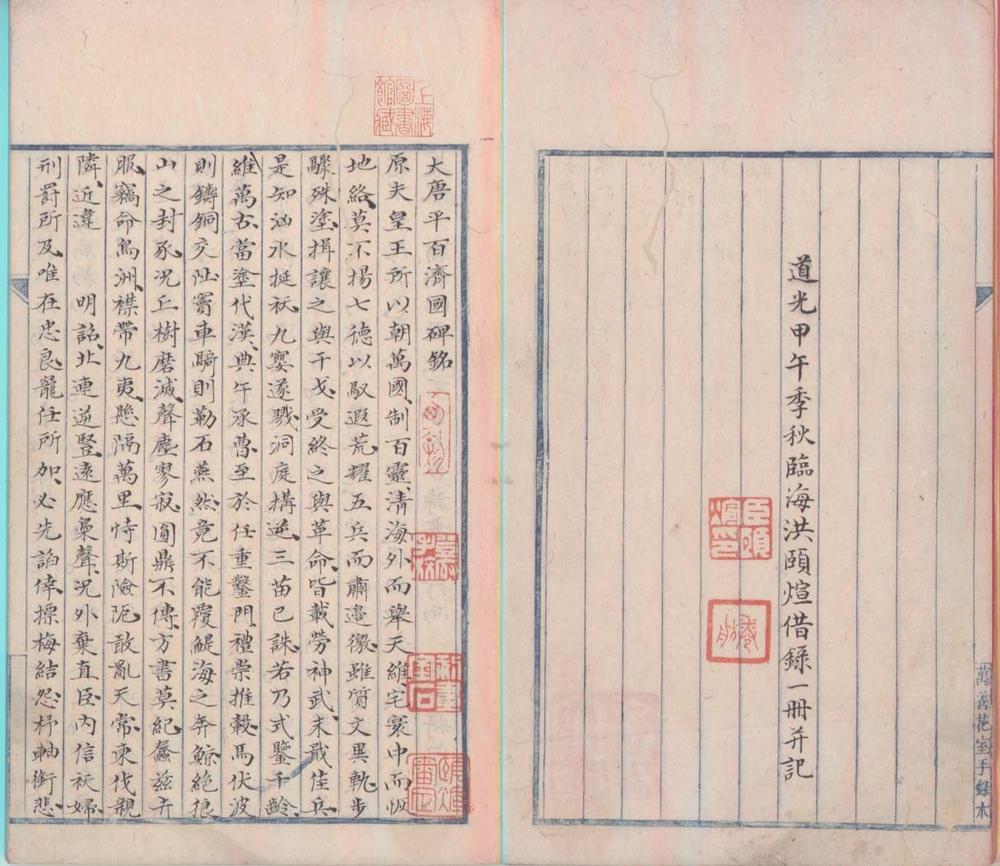 道光甲午季秋臨海洪頤煊借錄一冊并記
萬善花室手錄本
上海圖書館藏
臣頤煊印
大唐平百濟國碑銘
原夫皇王所以朝萬國制百靈清海外而舉天維宅寰中而恢
地絡莫不揚七德以馭遐荒耀五兵而肅邊徼雖質文異軌步
驟殊塗揖讓之與干戈受終之與革命皆載勞神武未戢佳兵
是知洶水挻祅九嬰遂戮洞庭搆逆三苗已誅若乃式鑒千齡
維萬古當塗代漢典午承曹至於任重鑿門禮崇推轂馬伏波
則鑄銅交阯竇車騎則勒石燕然竟不能覆鯷海之奔鯨絶狼
山之封豕况丘樹磨滅聲塵寥寂圓鼎不傳方書莫紀蠢茲卉
服竊命鳥洲襟帶九夷懸隔萬里恃斯險阨敢亂天常東伐親
隣近違 明詔北連逆豎遠應梟聲况外棄直臣內信祅婦
刑罰所及唯在忠良寵任所加必先諂倖摽梅結怨杼軸銜悲